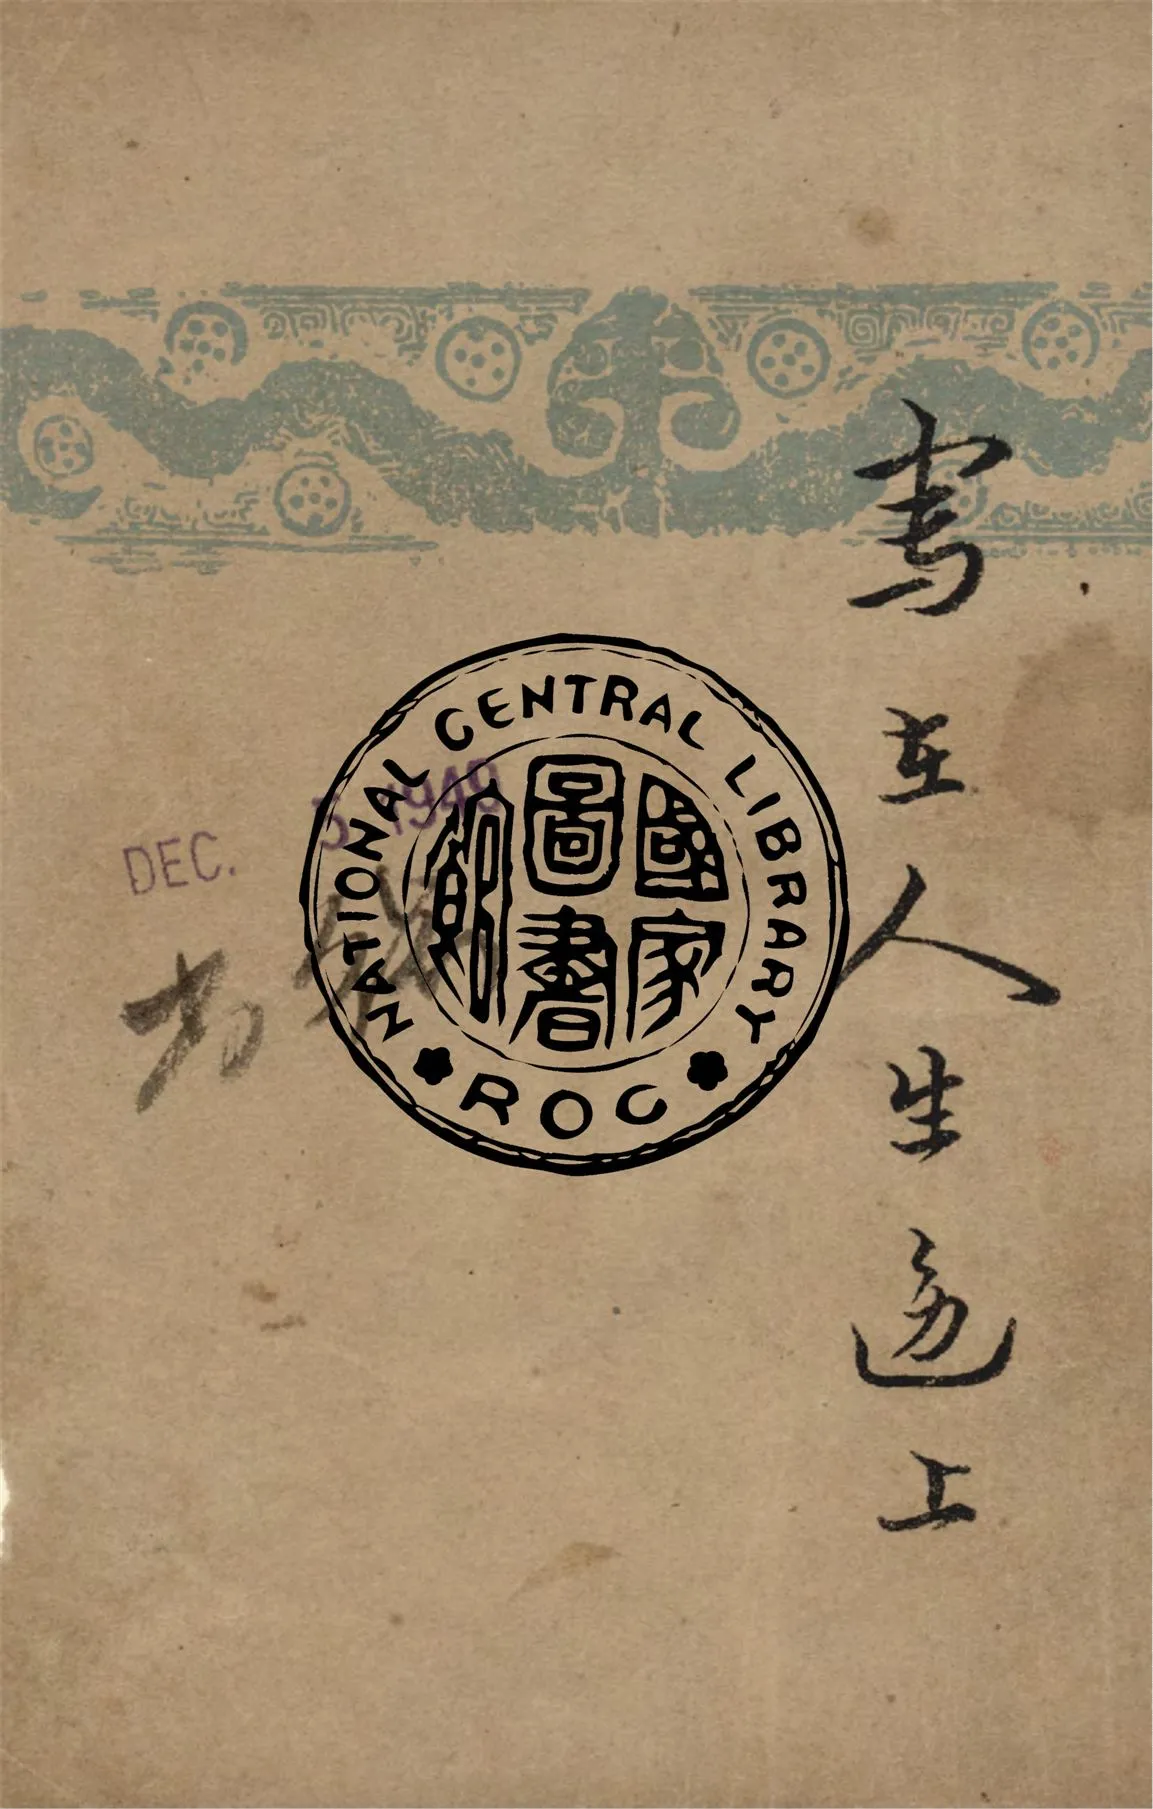 寫在人生邊上
NATIONAL CENTRAL LIBRARY
國家
圖書
館
ROC
DEC. 5 1949